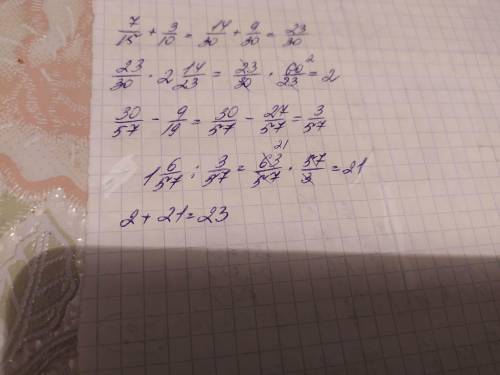 7/15 + 3/10 = 14/30 + 9/30 = 23/30
23/30 · 2 14/23 = 23/30 · 60/23 2 = 2
30/57 - 9/19 = 30/57 - 27/57 = 3/57
1 6/57 : 3/57 = 63/57 21 · 57/3 = 21
2 + 21 = 23